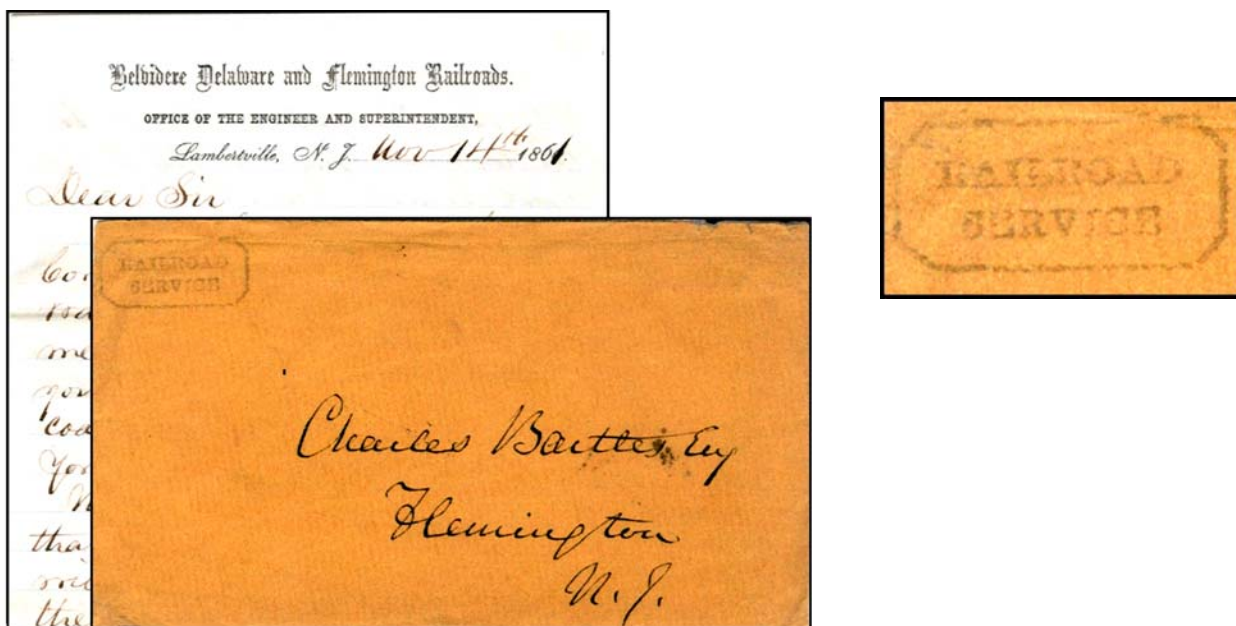 Belvidere Delaware and Flemington Railroads.
OFFICE OF THE ENGINEER AND SUPERINTENDENT,
Lambertville, N. J. Nov 14th 1861.
Dear Sir
RAILROAD
SERVICE
Charles Bartles Esq
Flemington
N. J.
tha
the
RAILROAD
SERVICE